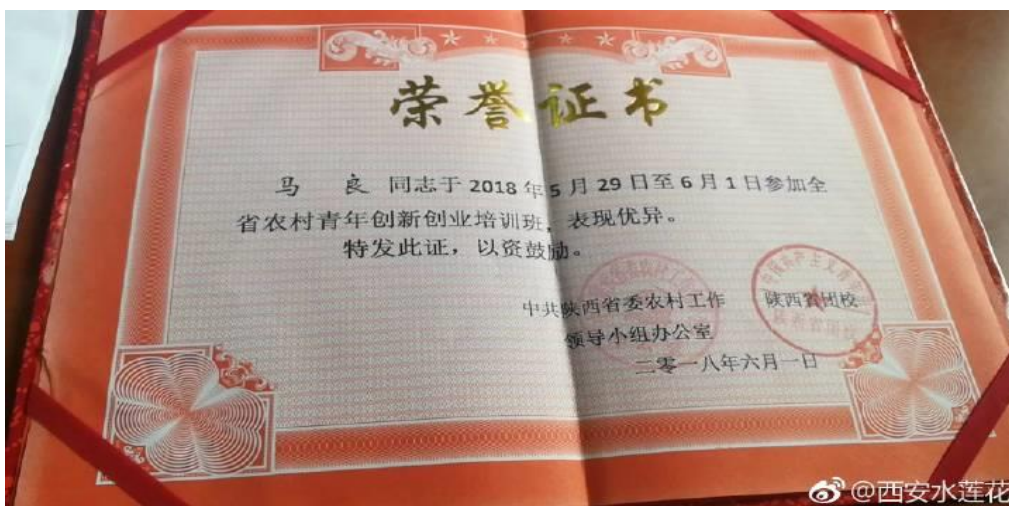 荣誉证书
马 良 同志于 2018 年 5 月 29 日至 6 月 1 日参加全
省农村青年创新创业培训班，表现优异。
特发此证，以资鼓励。
中共陕西省委农村工作 陕西省团校
领导小组办公室
二零一八年六月一日
@西安水莲花